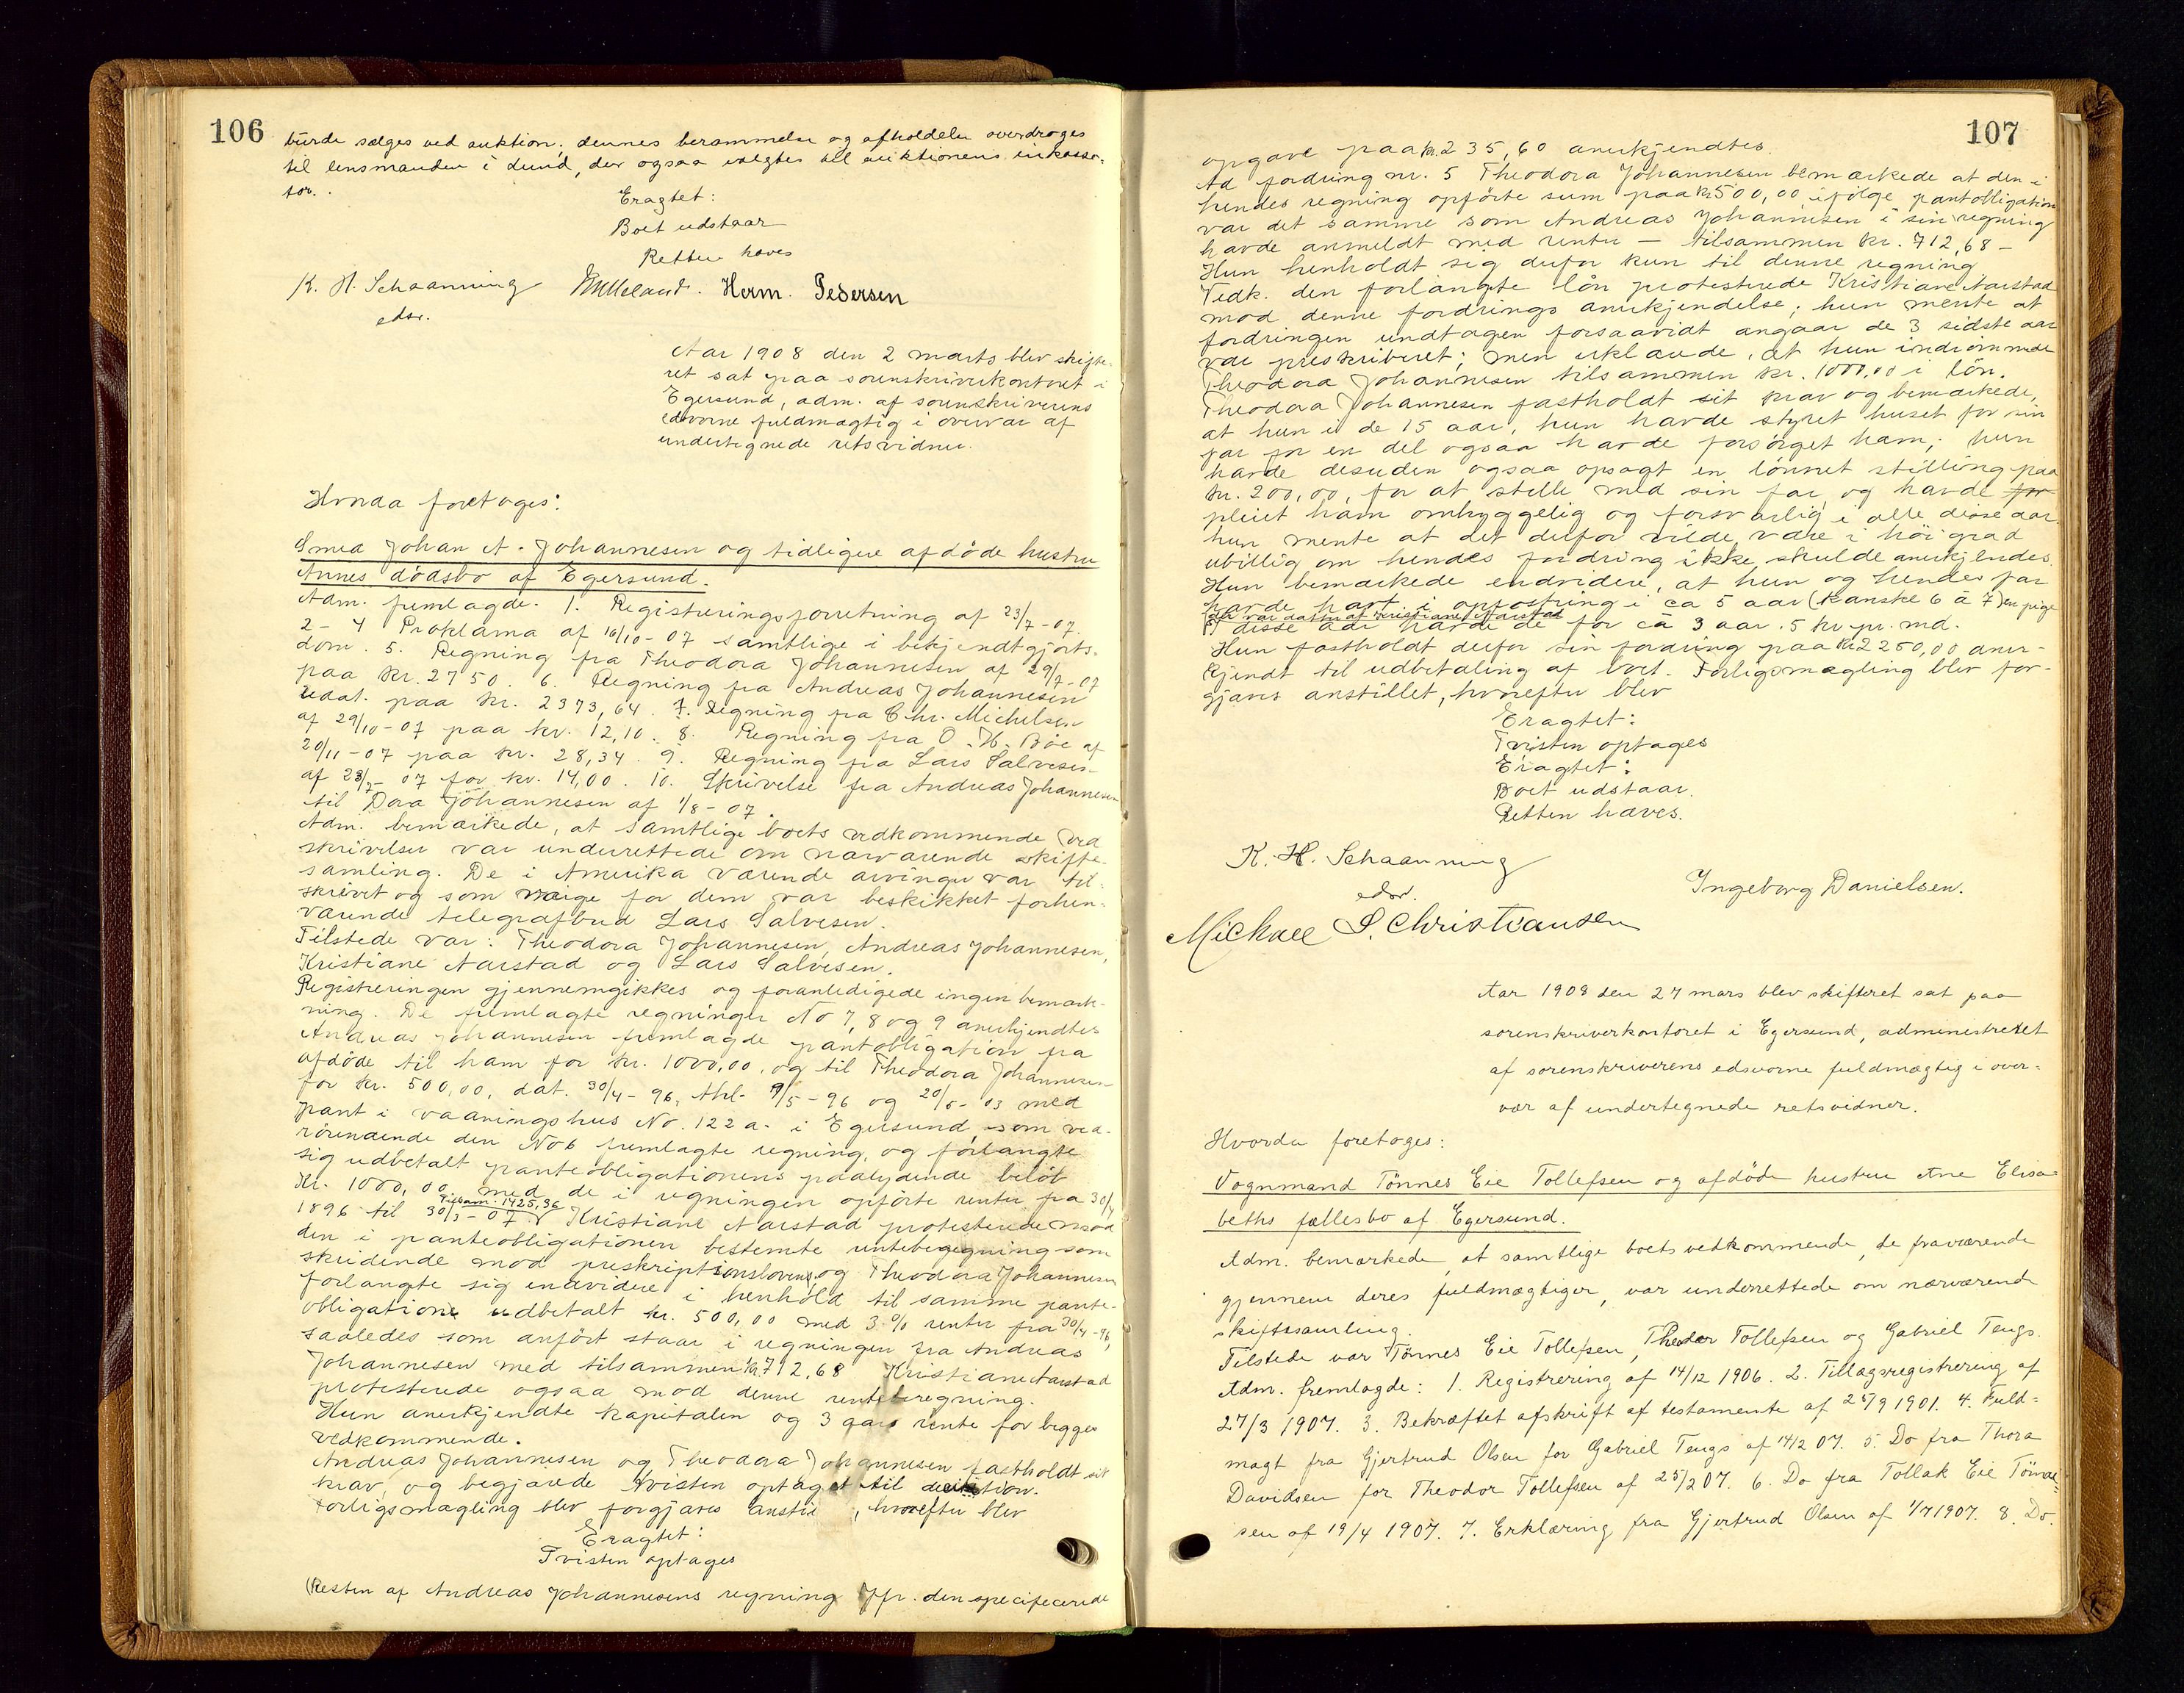 106
burde sælges ved auktion; dennes berammelse og afholdelse overdroges
til lensmanden i Lund, der ogsaa valgtes til auktionens inkassa-
tor.
Eragtet:
Boet udstaar
Retten hæves
K. H. Schaanning Herm. Pedersen
edsv.
Aar 1908 den 2 marts blev skifte-
ret sat paa sorenskriverkontoret i
Egersund, adm. af sorenskriverens
edsvorne fuldmægtig i overvær af
undertegnede retsvidner.
Hvorda foretoges:
Smed Johan A. Johannesen og tidligere afdøde hustru
Annes dødsbo af Egersund.
Adm. fremlagde. 1. Registreringsforretning af 23/7-07.
2-4 Proklama af 16/10-07 samtlige i bekjendtgjorts-
dom. 5. Regning fra Theodora Johannesen af 29/7-07
paa kr. 2750. 6. Regning fra Andreas Johannesen
udat. paa kr. 2373,64. 7. Regning fra Chr. Michelsen
af 29/10-07 paa kr. 12,10. 8. Regning fra O. H. Bøe af
20/11-07 paa kr. 28,34. 9. Regning fra Lars Salvesen
af 23/7-07 for kr. 14,00. 10. Skrivelse fra Andreas Johannesen
til Dora Johannesen af 1/8-07.
Adm. bemærkede, at samtlige boets vedkommende ved
skrivelser var underrettede om nærværende skifte-
samling. De i Amerika værende arvinger var til-
skrevet og som værge for dem var beskikket forhen-
værende telegrafbud Lars Salvesen.
Tilstede var: Theodora Johannesen, Andreas Johannesen,
Kristiane Aarstad og Lars Salvesen.
Registreringen gjennemgikkes og foranledigede ingen bemærk-
ning. De fremlagte regninger No 7, 8 og 9 anerkjendtes
Andreas Johannesen fremlagde pantobligation fra
afdøde til ham for kr. 1000,00, og til Theodora Johannesen
for kr. 500,00, dat. 30/4-96, thl. 9/5-96 og 20/5-03 med
pant i vaaningshus No. 122 a. i Egersund, som ved-
rørenaende den No 6 fremlagte regning, og forlangte
sig udbetalt panteobligationens paalydende beløb
Kr. 1000,00 med de i regningen opførte renter fra 30/4
1896 til 30/3-07. Tilsam. 1425,36 Kristiane Aarstad protesterede mod
den i panteobligationen bestemte renteberegning som
stridende mod preskriptionsloven, og Theodora Johannesen
forlangte sig endvidere i henhold til samme pante-
obligation udbetalt kr. 500,00 med 3% renter fra 30/4-96,
saaledes som anført staar i regningen fra Andreas
Johannesen med tilsammen kr. 712,68 Kristiane Aarstad
protesterede ogsaa mod denne renteberegning.
Hun anerkjendte kapitalen og 3 aars rente for begges
vedkommende.
Andreas Johannesen og Theodora Johannesen fastholdt sit
krav, og begjærede tvisten optaget til decision.
Forligsmægling blev forgjæves , hvorefter blev
Eragtet:
Tvisten optages
Resten af Andreas Johannesens regning Jfr. den specificerede
107
opgave paa kr. 235,60 anerkjendtes.
Ad fordring nr. 5 Theodora Johannesen bemærkede at den i
hendes regning opførte sum paa kr 500,00 ifølge pantobligation
var det samme som Andreas Johannesen i sin regning
havde anmeldt med renter – tilsammen kr. 712,68 –
Hun henholdt sig derfor kun til denne regning
Vedk. den forlangte løn protesterede Kristiane Aarstad
mod denne fordrings anerkjendelse; hun mente at
fordringen undtagen forsaavidt angaar de 3 sidste aar
var preskriberet; men erklærede, at hun indrømmede
Theodora Johannesen tilsammen kr. 1000,00 i løn.
Theodora Johannesen fastholdt sit krav og bemærkede,
at hun i de 15 aar, hun havde styret huset for sin
far for en del ogsaa havde forsørget ham; hun
havde desuden ogsaa opsagt en lønnet stilling paa
kr. 200,00, for at stelle med sin far og havde for
pleiet ham omhyggelig og forsvarlig i alle disse aar.
hun mente at det derfor vilde være i høi grad
ubillig om hendes fordring ikke skulde anerkjendes.
Hun bemærkede endvidere, at hun og hendes far
havde havt i opfostring i ca 5 aar (kanske 6 à 7) en pige
der var datter af Kristiane Aarstad
I disse aar havde de for ca 3 aar. 5 kr pr. md.
Hun fastholdt derfor sin fordring paa kr 2250,00 aner-
kjendt til udbetaling af boet. Forligsmægling blev for-
gjæves anstillet, hvorefter blev
Eragtet:
Tvisten optages
Eragtet:
Boet udstaar.
Retten hæves.
K. H. Schaanning
edsv. Ingeborg Danielsen.
Michael S. Christiansen
Aar 1908 den 27 mars blev skifteret sat paa
sorenskriverkontoret i Egersund, administreret
af sorenskriverens edsvorne fuldmægtig i over-
vær af undertegnede retsvidner.
Hvorda foretoges:
Vognmand Tønnes Eie Tollefsen og afdøde hustru Ane Elisa-
beths fællesbo af Egersund.
Adm. bemærkede at samtlige boets vedkommende, de fraværende
gjennem deres fuldmægtiger, var underrettede om nærværende
skiftesamling.
Tilstede var Tønnes Eie Tollefsen, Theodor Tollefsen og Gabriel Tengs.
Adm. fremlagde: 1. Registrering af 14/12 1906. 2. Tillægsregistrering af
27/3 1907. 3. Bekræftet afskrift af testamente af 25/9 1901. 4. Fuld-
magt fra Gjertrud Olsen for Gabriel Tengs af 14/2 07. 5. Do fra Thora
Davidsen for Theodor Tollefsen af 25/2 07. 6. Do fra Tollak Eie Tønne-
sen af 19/4 1907. 7. Erklæring fra Gjertrud Olsen af 1/7 1907. 8. Do.